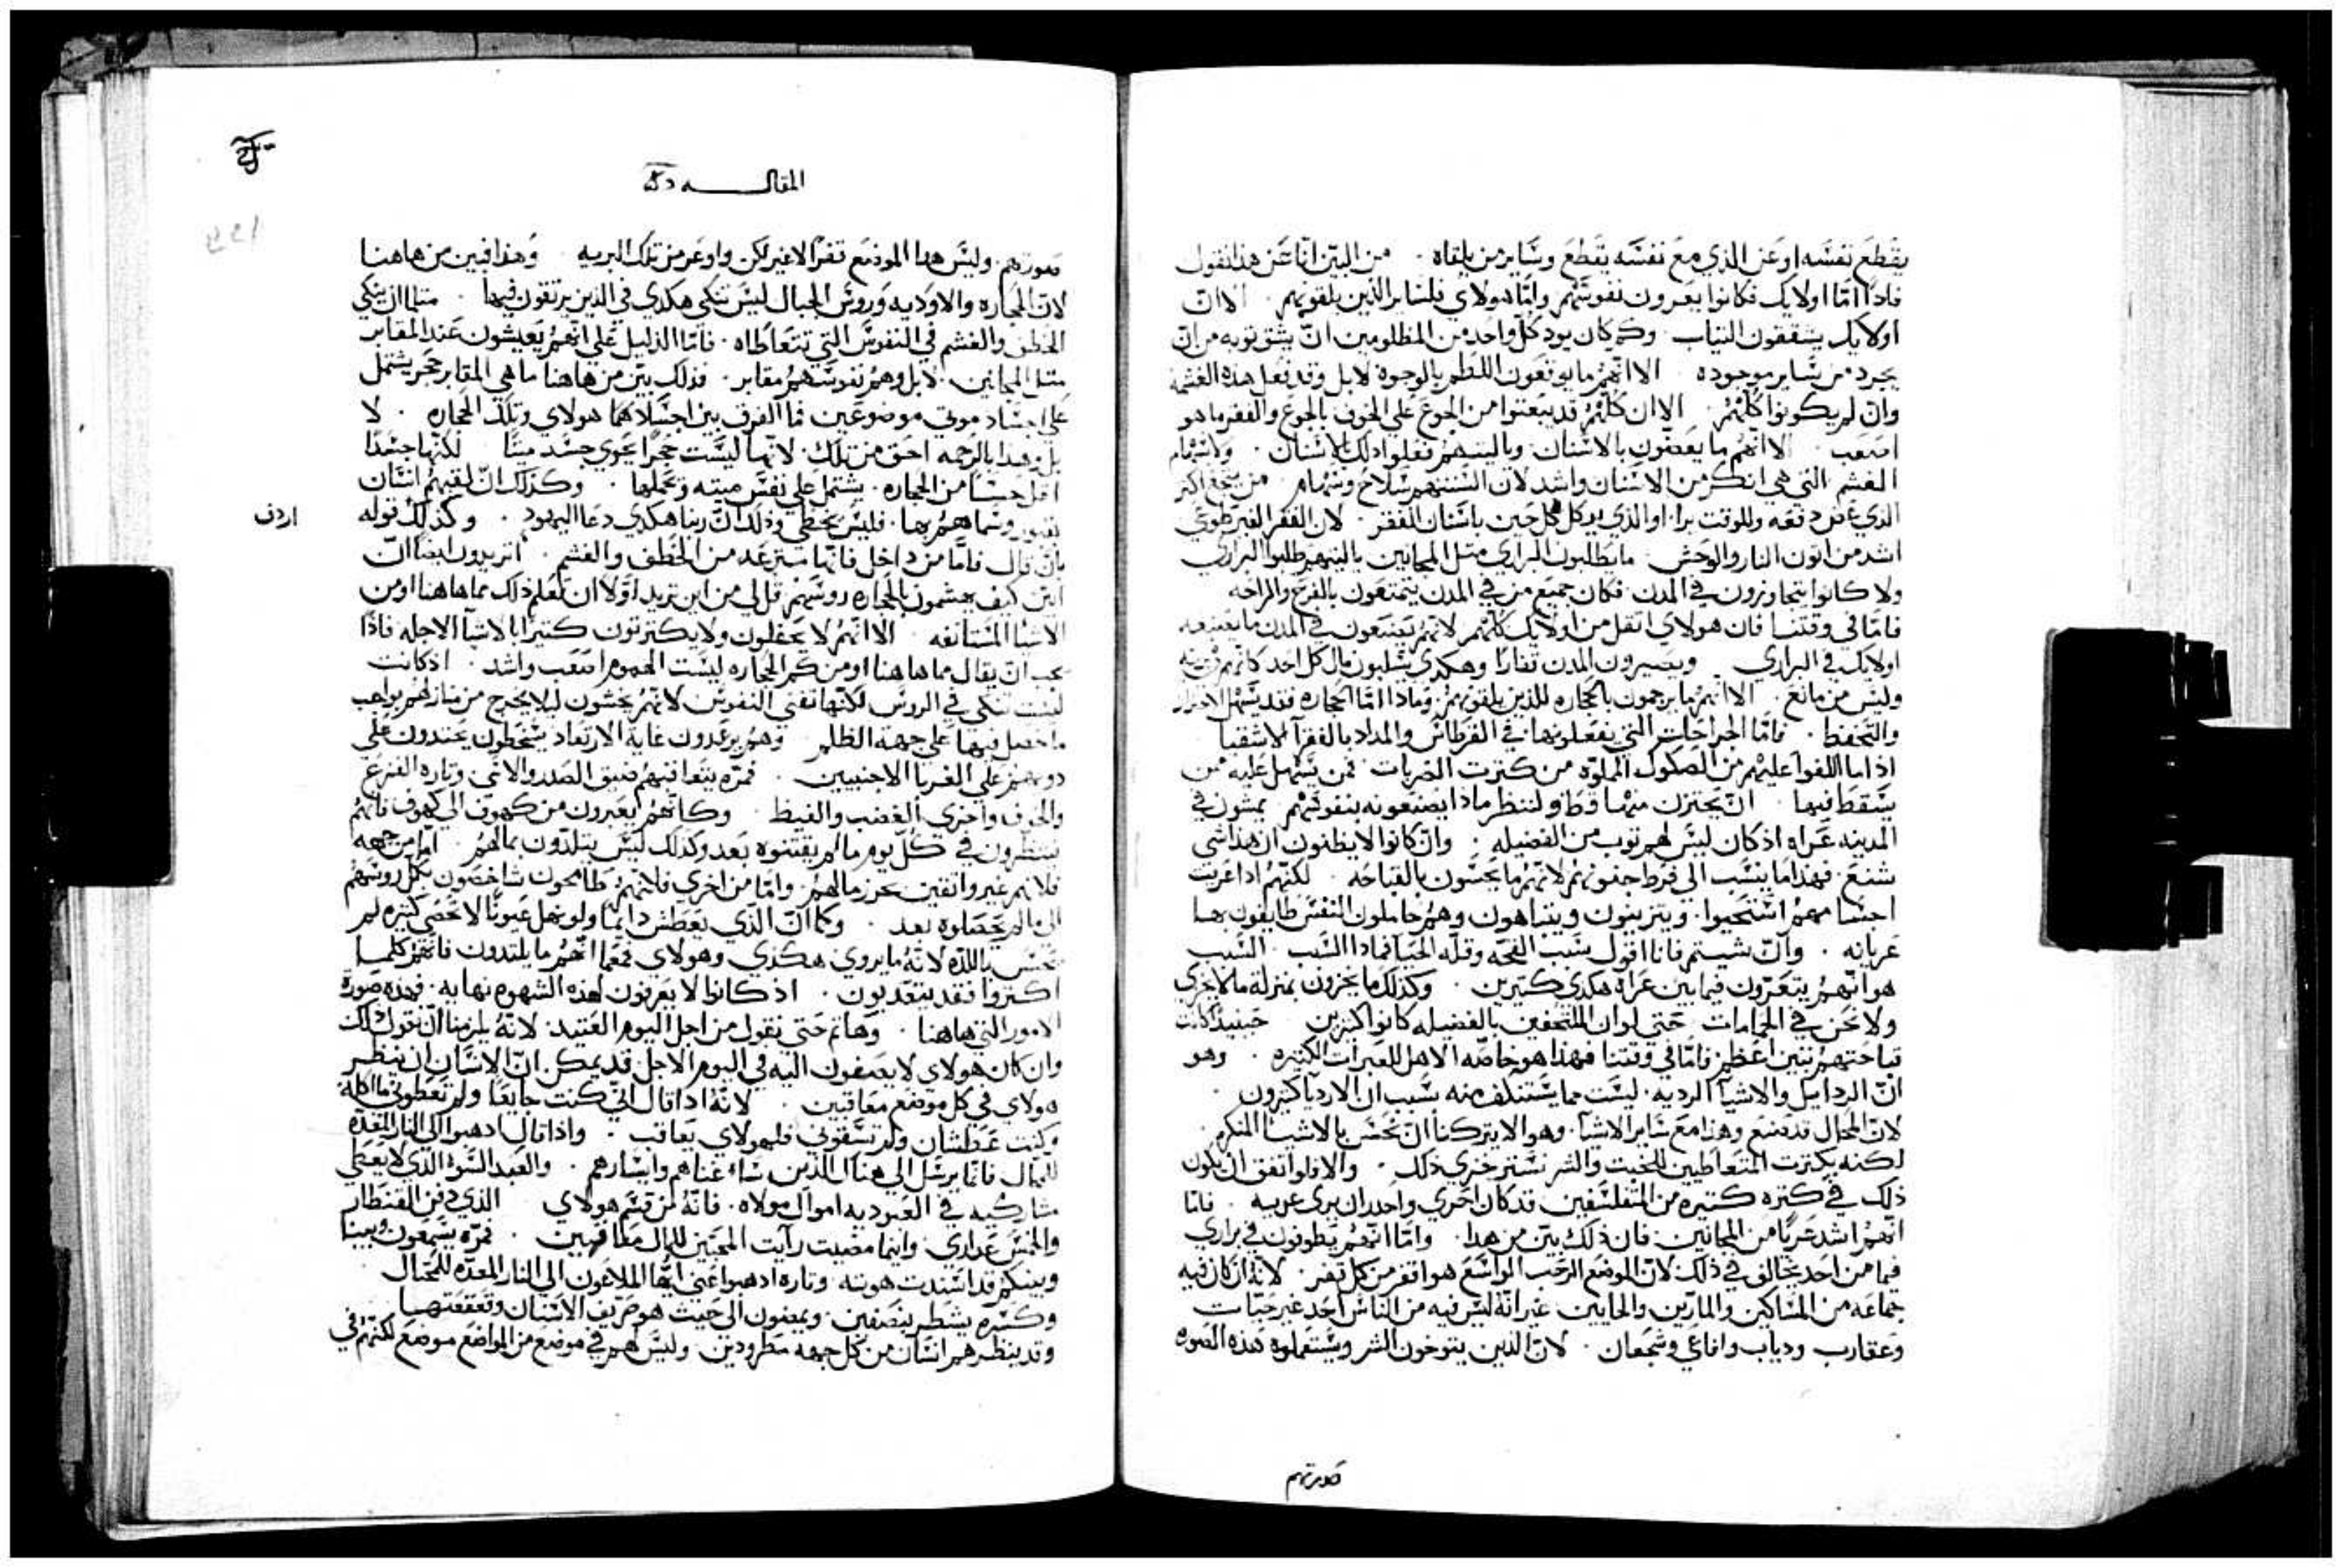 يقطع نفسه او عن الذي مع نفسه يقطع وساير من يلقاه . من البين انّا عن هذا نقول
فاذًا امّا اولايك فكانوا يعرون نفوسهم وامّا هولاي فلساير الذين يلقونهم . الا انّ
اولايك يشققون الثياب وكم كان يود كل واحد من المظلومين انّ يشق توبه من انّ
يجرد من ساير موجوده الا انهم ما يوقعون اللطم بالوجوه لا بل وقد تفعل هذه الغشمه
وانّ لم يكونوا كلهم . الا ان كلهم قد يبعتوا من الجوع على الخوف بالجوع والفقر ما هو
اصعب . الا انهم ما يعضون بالاسنان . وياليتهم فعلوا ذلك بالاسنان . ولا سهام
الغشم التي هي انكر من الاسنان واشد لان السنتهم سلاح وسهام . من يتجع اكتر
الذي عض دفعه وللوقت برا . او الذي يوكل كل حين باسنان الفقر . لان الفقر الغير طوعي
اشد من اتون النار والوحش . ما يطلبون البراري متل المجانين ياليتهم طلبوا البراري
ولا كانوا يتجاوزون في المدن . فكان جميع من في المدن يتمتعون بالفرح والراحه
فامّا في وقتنا فان هولاي اتقل من اولايك كلهم لانهم يصنعون في المدن ما يصنعه
اولايك في البراري ويصيرون المدن قفارًا وهكدي يسلبون مال كل احد كانهم في بريه
وليس من مانع . الا انهم ما يرجمون بالحجاره للذين يلقونهم . وماذا امّا الحجاره فقد يسهل الاحتراز
والتحفظ . فامّا الجراحات التي يفعلونها في القرطاس والمداد بالفقرآ الاشقيا
اذا ما اللفوا عليهم من الصكوك المملوه من كترت الضربات . فمن يسهل عليه ممن
يسقط فيها . انّ يحترز منهما قط ولننظر ماذا يصنعونه بنفوسهم يمشون في
المدينه عراه اذ كان ليس لهم توب من الفضيله . وانّ كانوا لا يظنون ان هذا شي
شنع . فهذا ما ينسب الى فرط جنونهم لانهم ما يحسون بالقباحه . لكنهم اذا عريت
اجسامهم استحيوا . ويتزينون ويتباهون وهم حاملون النفس طايفون بها
عريانه . وانّ شيتم فانا اقول سبب القحه وقله الحيا فماذا السبب . السبب
هو انهم يتعرون فيما بين عراه هكدي كتيرين . وكذلك ما يخزون بمنزلة ما لا نخزي
ولا نحن في الحمامات حتى لو ان الملتحفين بالفضيله كانوا كتيرين حينيذ كانت
قباحتهم تبين اعظم فامّا في وقتنا فهذا هو خاصّه الاهل للعبرات الكتيره . وهو
انّ الردايل والاشيا الرديه . ليست مما يستنكف منه بسبب ان الارديا كتيرون .
لانّ المحال قد صنع وهذا مع ساير الاشيآ . وهو الا يتركنا انّ نحس بالاشيا المنكره .
لكنه بكترت المتعاطيين للخبت والشر نستر خزي ذلك . والا فلو اتفق ان يكون
ذلك في كتره كتيره من المتفلسفين قد كان احري واجدر ان يرى عريه . فامّا
انّهم اشد عريًا من المجانين . فان ذلك بيّن من هدا . وامّا انّهم يطوفون في براري
فما من احد يخالف في ذلك لانّ الموضع الرحب الواسع هو اقفر من كل قفر . لانه ان كان فيه
جماعه من المساكين والمارّين والجايين . غير انّه ليس فيه من الناس احد غير حيّات
وعقارب ودياب وافاعي وشجعان . لانّ الذين يتوخون الشر ويستعملوه هذه الصوره
صورتهم
المقالـــه
صورتهم . وليس هدا الموضع قفرًا لا غير لكن واوعر من تلك البريه . وهذا فبين من هاهنا
لانّ الحجاره والاوديه وروس الجبال ليس تنكي هكدي في الذين يرتقون فيها . متلما ان ينكي
الخطف والغشم في النفوس التي تتعاطاه . فامّا الدليل على انهم يعيشون عند المقابر
متل المجانين . لا بل وهم نفوسهم مقابر . فذلك بيّن من هاهنا ما هي المقابر حجر يشتمل
على اجساد موتي موضوعين فما الفرق بين اجسادهما هولاي وتلك الحجاره . لا
بل وهدا بالرحمه احق من تلك . لانّها ليست حجرًا يحوي جسد ميتًا لكنها جسدًا
اقل حسًا من الحجاره . يشتمل على نفس ميته وتحملها . وكذلك انّ لقبهم انسان
بقبور وسماهم بها . فليس يخطي وذلك انّ ربنا هكدي دعا اليهود . وكذلك قوله
اردف
بان قال . فامّا من داخل فانها مترعه من الخطف والغشم . اتريدون ايضًا انّ
ابين كيف يهشمون بالحجاره روسهم . قل لي من اين تريد اوّلا ان تعلم ذلك مما هاهنا او من
الاشيا المستانفه . الا انهم لا يحفلون ولا يكترتون كتيرًا بالاشيآ الاجله فاذًا
يجب انّ يقال مما هاهنا او من كم الحجاره ليست الهموم اصعب واشد . اذ كانت
ليست تنكي في الروس لكنها تفني النفوس لانهم يخشون ليلا يخرج من منازلهم بواجب
ما حصل فيها على جهة الظلم . وهم يرعدون غاية الارتعاد يسخطون يحتدون على
دويهم على الغربا الاجنبيين . فمرّه يتعاقبهم ضيق الصدر والاتى . وتاره الفزع
والخوف واخري الغضب والغيظ . وكانهم يعبرون من كهوف الى كهوف فانّهم
ينتظرون في كل يوم ما لم يقتنوه بعد وكذلك ليس يتلدّون بمالهم . امّا من جهه
فلانهم غير واتقين بحرز مالهم . وامّا من اخري فلانهم طامحون شاخصون بكل روسهم
الى ما لم يحصلوه بعد . وكما انّ الذي يعطش دايمًا ولو نهل عيونًا لا تحصى كتره لم
يحس باللذه لانّه ما يروي هكذي وهولاي فمع انهم ما يلتدون فانهم كلما
اكتروا فقد يتعدبون . اذ كانوا لا يعرفون لهذه الشهوه نهايه . فهذه صورة
الامور التي هاهنا . وهاتم حتى نقول من اجل اليوم العتيد . لانّه يلزمنا انّ نقول ذلك
وان كان هولاي لا يصغون اليه في اليوم الاجل قد يمكن انّ الانسان ان ينظر
هولاي في كل موضع معاقبين . لانّه اذا قال انّي كنت جايعًا ولم تعطوني ما اكله
وكنت عطشان ولم تسقوني فلهولاي يعاقب . واذا قال ادهبوا الى النار المعدّه
للمحال فانّما يرسل الى هناك الذين ساء غناهم وايسارهم . والعبد السّوء الذي لا يعطي
مشاركيه في العبوديه اموال مولاه . فانّه من قسم هولاي الذي دفن القنطار
والخمس عداري . واينما مضيت رايت المحبّين للمال معاقبين . فمرّه يسمعون وبيننا
وبينكم قد استدت هوته وتاره ادهبوا عنّي ايّها الملاعين الى النار المعدّه للمحال
وكسّره يشطر بنصفين . ويمضون الى حيث هو صريف الاسنان وتقعقعتها
وقد ينظرهم انسان من كل جهه مطرودين . وليس لهم في موضع من المواضع موضع لكنّهم في